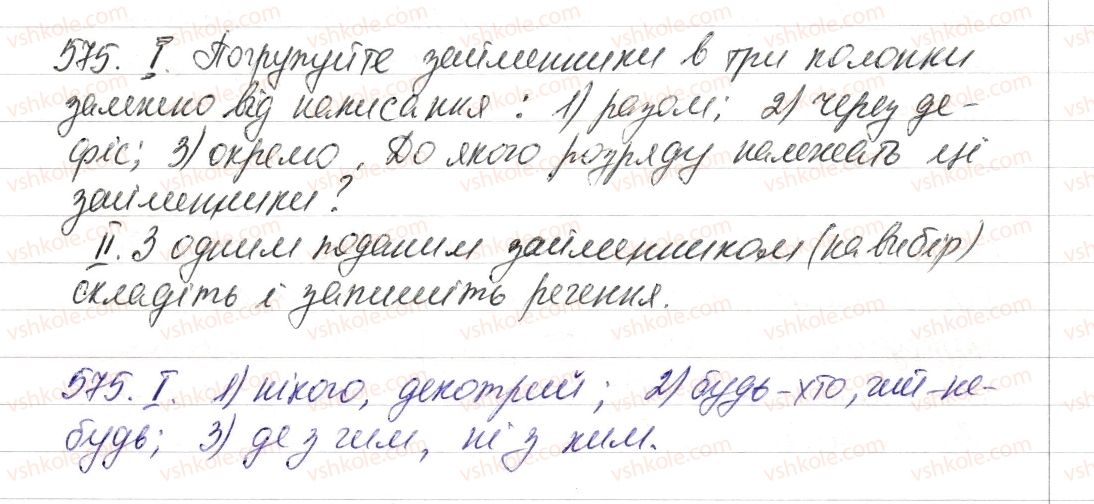 575. I. Погрупуйте займенники в три колонки
залежно від написання : 1) разом; 2) через де-
фіс; 3) окремо. До якого розряду належать ці
займенники?
II. З одним поданим займенником (на вибір)
складіть і запишіть речення.
575. I. 1) нікого, декотрий; 2) будь-хто, чий-не-
будь; 3) де з чим, ні з ким.